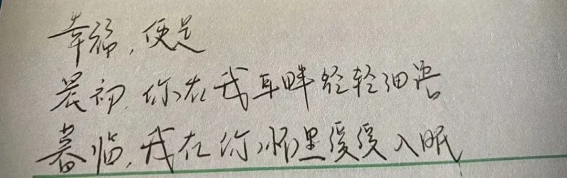 幸福，便是
晨初，你在我耳畔轻轻细语
暮临，我在你怀里缓缓入眠